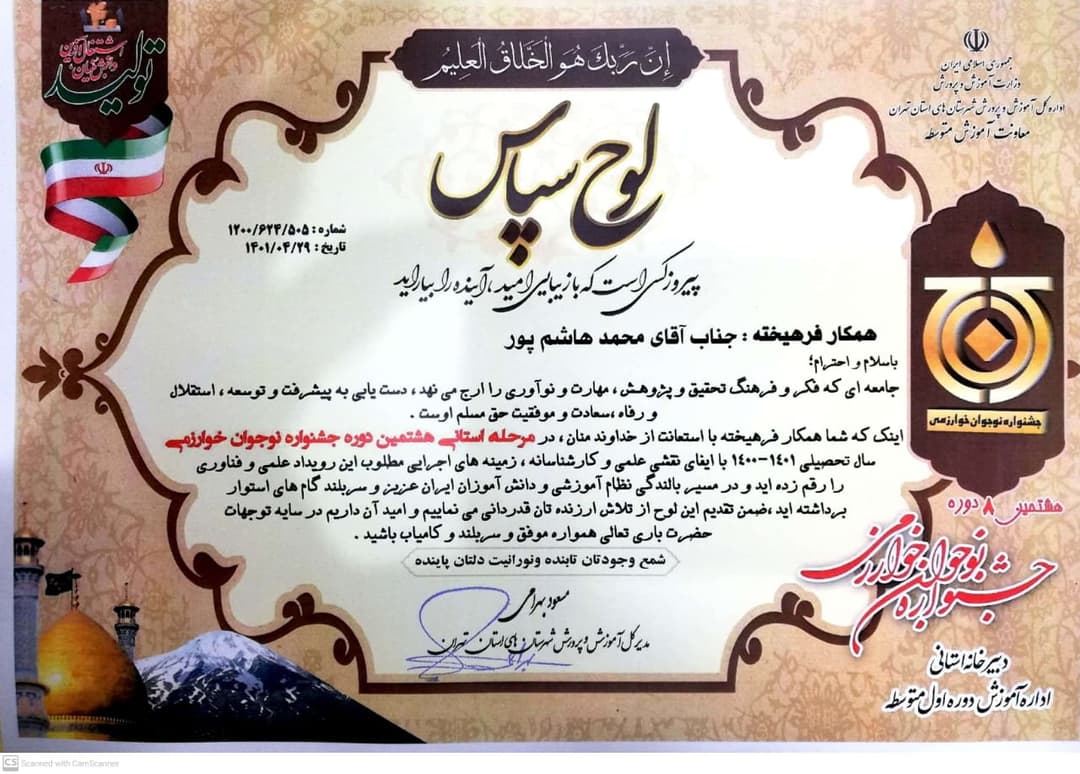 إنّ رَبَّكَ هُوَ الْخَلَّاقُ الْعَلِيمُ
جمهوری اسلامی ایران
وزارت آموزش و پرورش
اداره کل آموزش و پرورش شهرستان های استان تهران
معاونت آموزش متوسطه
تولید
دانش بنیان
اشتغال آفرین
لوح سپاس
شماره : ۱۲۰۰/۶۲۴/۵۰۵
تاریخ : ۱۴۰۱/۰۴/۲۹
پیروز کسی است که با زیبایی امید ، آینده را بیاراید
همکار فرهیخته : جناب آقای محمد هاشم پور
باسلام و احترام؛
جامعه ای که فکر و فرهنگ تحقیق و پژوهش ، مهارت و نوآوری را ارج می نهد ، دست یابی به پیشرفت و توسعه ، استقلال
و رفاه ،سعادت و موفقیت حق مسلم اوست .
اینک که شما همکار فرهیخته با استعانت از خداوند منان ، در مرحله استانی هشتمین دوره جشنواره نوجوان خوارزمی
سال تحصیلی ۱۴۰۱-۱۴۰۰ با ایفای نقشی علمی و کارشناسانه ، زمینه های اجرایی مطلوب این رویداد علمی و فناوری
را رقم زده اید و در مسیر بالندگی نظام آموزشی و دانش آموزان ایران عزیز و سربلند گام های استوار
برداشته اید ،ضمن تقدیم این لوح از تلاش ارزنده تان قدردانی می نماییم و امید آن داریم در سایه توجهات
حضرت باری تعالی همواره موفق و سربلند و کامیاب باشید .
شمع وجودتان تابنده ونورانیت دلتان پاینده
مسعود بهرامی
مدیر کل آموزش و پرورش شهرستان های استان تهران
جشنواره نوجوان خوارزمی
هشتمین ۸ دوره
جشنواره نوجوان خوارزمی
دبیرخانه استانی
اداره آموزش دوره اول متوسطه
CS Scanned with CamScanner